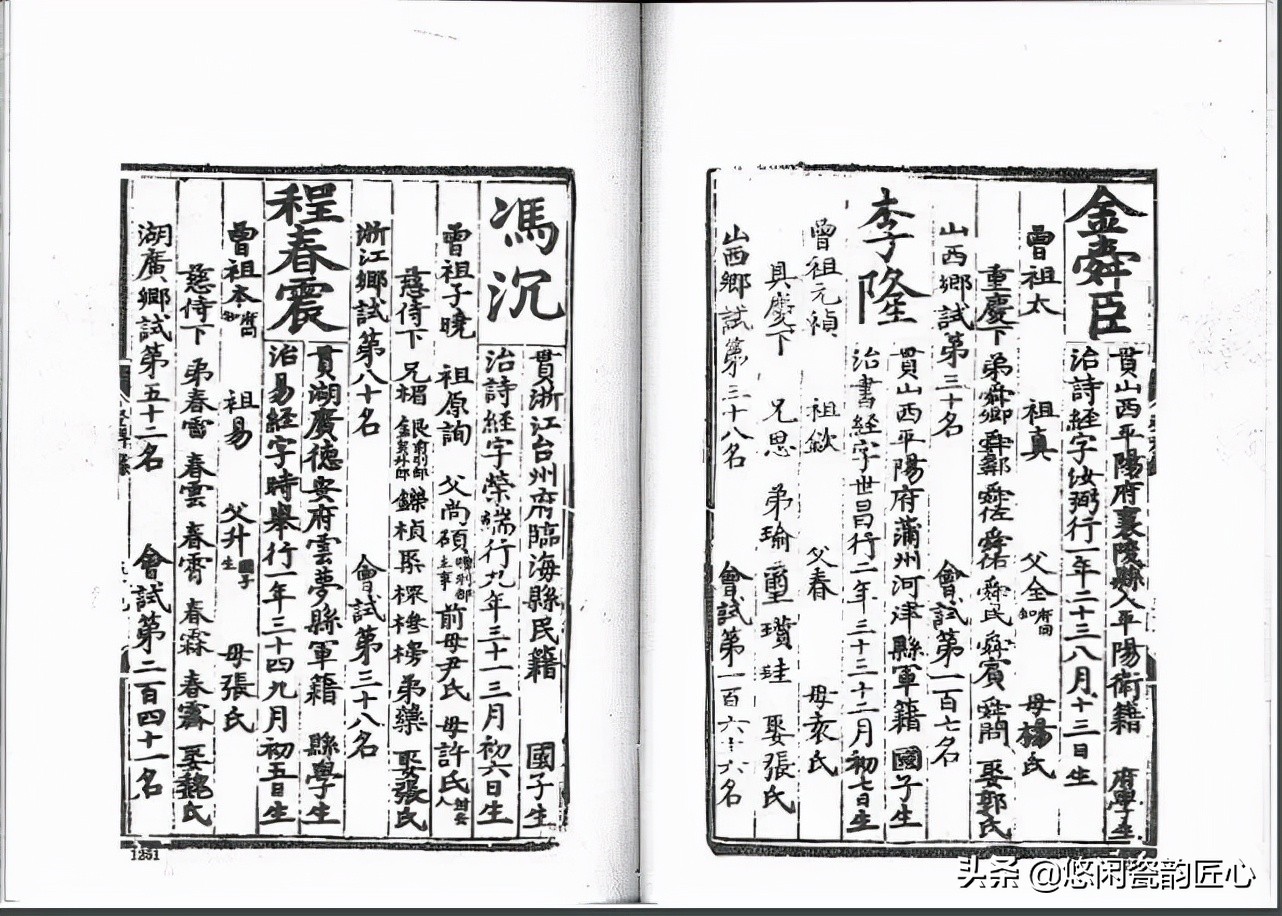 金舜臣
貫山西平陽府襄陵縣人平陽衛籍 府學生
治詩經字汝弼行一年二十三八月十三日生
曾祖太 祖真 父全 母楊氏
重慶下 弟舜卿 舜佐 舜佑 舜民 舜賓 舜問 娶郭氏
山西鄉試第三十名 會試第一百七名
李隆
貫山西平陽府蒲州河津縣軍籍 國子生
治書經字世昌行二年三十三十二月初七日生
曾祖元禎 祖欽 父春 母袁氏
具慶下 兄思 弟瑜 璽 瓚 珪 娶張氏
山西鄉試第三十八名 會試第一百六十六名
馮沉
貫浙江台州府臨海縣民籍 國子生
治詩經字榮端行九年三十一三月初六日生
曾祖子曉 祖原詢 父尚碩贈刑部主事 前母尹氏 母許氏封安人
慈侍下 兄楣 鑠 楨 弟藥 娶張氏
浙江鄉試第八十名 會試第三十八名
程春震
貫湖廣德安府雲夢縣軍籍 縣學生
治易經字時舉行一年三十四九月初五日生
曾祖本 祖易 父升國子生 母張氏
慈侍下 弟春雷 春雲 春霄 春霖 春霽 娶魏氏
湖廣鄉試第五十二名 會試第二百四十一名
1251
头条 @悠闲瓷韵匠心